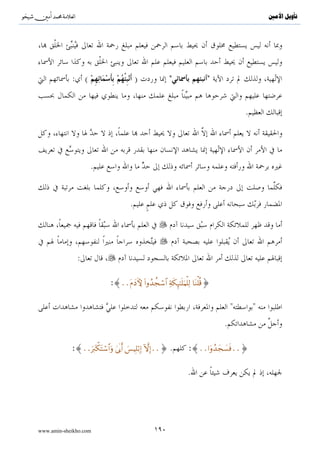 تأويل الأمين
العلامة محمد أمين شيخو
وبما أنه ليس يستطيع مخلوق أن يحيط باسم الرحمن فيعلم مبلغ رحمة الله تعالى فيُنبِّئ الخلْق بها،
وليس يستطيع أن يحيط أحد باسم العليم فيعلم علم الله تعالى وينبئ الخلْق به وكذا سائر الأسماء
الإلهية، ولذلك لم ترد الآية "أنبئهم بأسمائي" إنما وردت ﴿ أَنْبِئْهُم بِأَسْمَآئِهِمْ ﴾ أي: بأسمائهم التي
عرضتها عليهم والتي شرحوها هم مبيِّناً مبلغ علمك منها، وما ينطوي فيها من الكمال بحسب
إقبالك العظيم.
والحقيقة أنه لا يعلم أسماء الله إلاَّ الله تعالى ولا يحيط أحد بها علماً، إذ لا حدَّ لها ولا انتهاء، وكل
ما في الأمر أن الأسماء الإلهية إنما يشاهد الإنسان منها بقدر قربه من الله تعالى ويتوسَّع في تعريف
غيره برحمة الله ورأفته وعلمه وسائر أسمائه وذلك إلى حدٍّ ما والله واسع عليم.
فكلَّما وصلت إلى درجة من العلم بأسماء الله فهي أوسع وأوسع، وكلما بلغت مرتبة في ذلك
المضمار فربّك سبحانه أعلى وأرفع وفوق كل ذي علمٍ عليم.
أما وقد ظهر للملائكة الكرام سبْق سيدنا آدم ﷺ في العلم بأسماء الله سبْقاً فاقهم فيه جميعاً، هنالك
أمرهم الله تعالى أن يُقبلوا عليه بصحبة آدم ﷺ فيتَّخذوه سراجاً منيراً لنفوسهم، وإماماً لهم في
إقبالهم عليه تعالى لذلك أمر الله تعالى الملائكة بالسجود لسيدنا آدم ﷺ، قال تعالى:
﴿ قُلْنَا لِلْمَلَٰٓئِكَةِ ٱسْجُدُوا۟ لِءَادَمَ.. ﴾:
اطلبوا منه "بواسطته" العلم والمعرفة، اربطوا نفوسكم معه لتدخلوا عليَّ فتشاهدوا مشاهدات أعلى
وأجلّ من مشاهداتكم.
﴿ ..فَسَجَدُوٓا۟.. ﴾: كلهم. ﴿ ..إِلَّآ إِبْلِيسَ أَبَىٰ وَٱسْتَكْبَرَ.. ﴾:
لجهله، إذ لم يكن يعرف شيئاً عن الله.
www.amin-sheikho.com
١٩٠